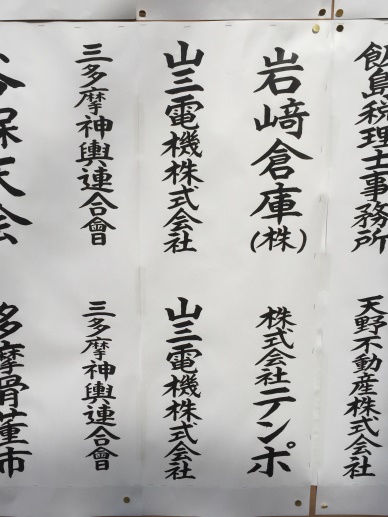 飯島税理士事務所
天野不動産株式会社
岩﨑倉庫(株)
株式会社テンポ
山三電機株式会社
山三電機株式会社
三多摩神輿連合會
三多摩神輿連合會
谷保天会
多摩骨董市